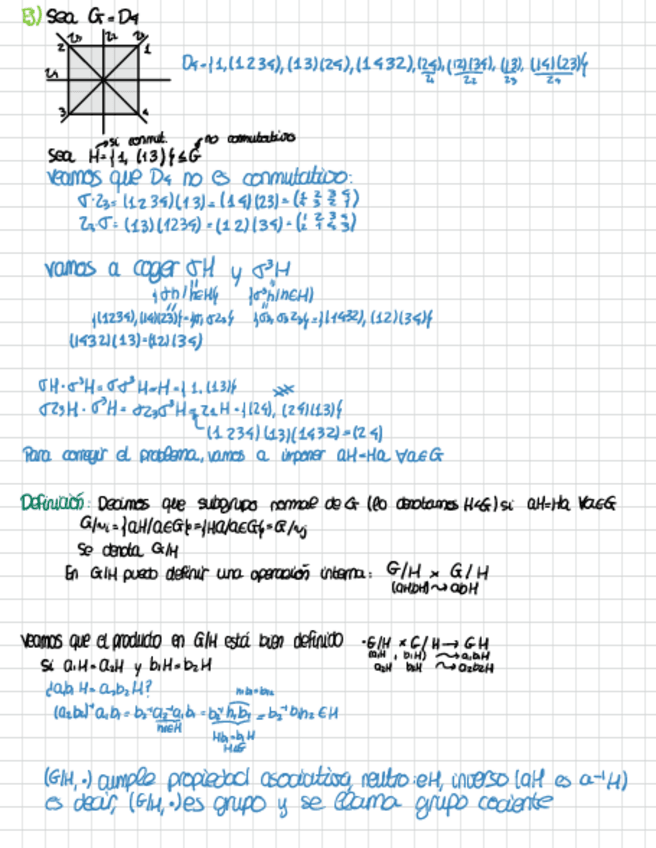 Ej) Sea G=D4
2 z3 z2 z1 1
z4
3 4
D4={1,(1234),(13)(24),(1432),(24),(12)(34),(13),(14)(23)}
z1 z2 z3 z4
si conmut. no conmutativo
Sea H={1,(13)}≤G
Veamos que D4 no es conmutativo:
σ·z3=(1234)(13)=(14)(23)=(1 2 3 4 / 4 3 2 1)
z3σ=(13)(1234)=(12)(34)=(1 2 3 4 / 2 1 4 3)
Vamos a coger σH y σ³H
{σh/h∈H} {σ³h/h∈H}
{(1234),(14)(23)}={σ,σz3} {σ³,σ³z3}={(1432),(12)(34)}
(1432)(13)=(12)(34)
σH·σ³H=σσ³H=H={1,(13)}
σz3H·σ³H=σz3σ³H=z1H={(24),(24)(13)}
(1234)(13)(1432)=(24)
Para corregir el problema, vamos a imponer aH=Ha ∀a∈G
Definición: Decimos que subgrupo normal de G (lo denotamos H◁G) si aH=Ha ∀a∈G
G/~i={aH/a∈G}={Ha/a∈G}=G/~d
Se denota G/H
En G/H puedo definir una operación interna: G/H × G/H
(aHbH)⇝abH
Veamos que el producto en G/H está bien definido ·G/H × G/H → G/H
a1H , b1H ⇝ a1b1H
Si a1H=a2H y b1H=b2H a2H b2H ⇝ a2b2H
¿a1b1H=a2b2H?
h1b1=b1h2
(a2b2)⁻¹a1b1=b2⁻¹a2⁻¹a1b1=b2⁻¹h1b1=b2⁻¹b1h2∈H
h1∈H
Hb1=b1H
H◁G
(G/H,·) cumple propiedad asociativa, neutro:eH, inverso (aH es a⁻¹H)
es decir, (G/H,·) es grupo y se llama grupo cociente